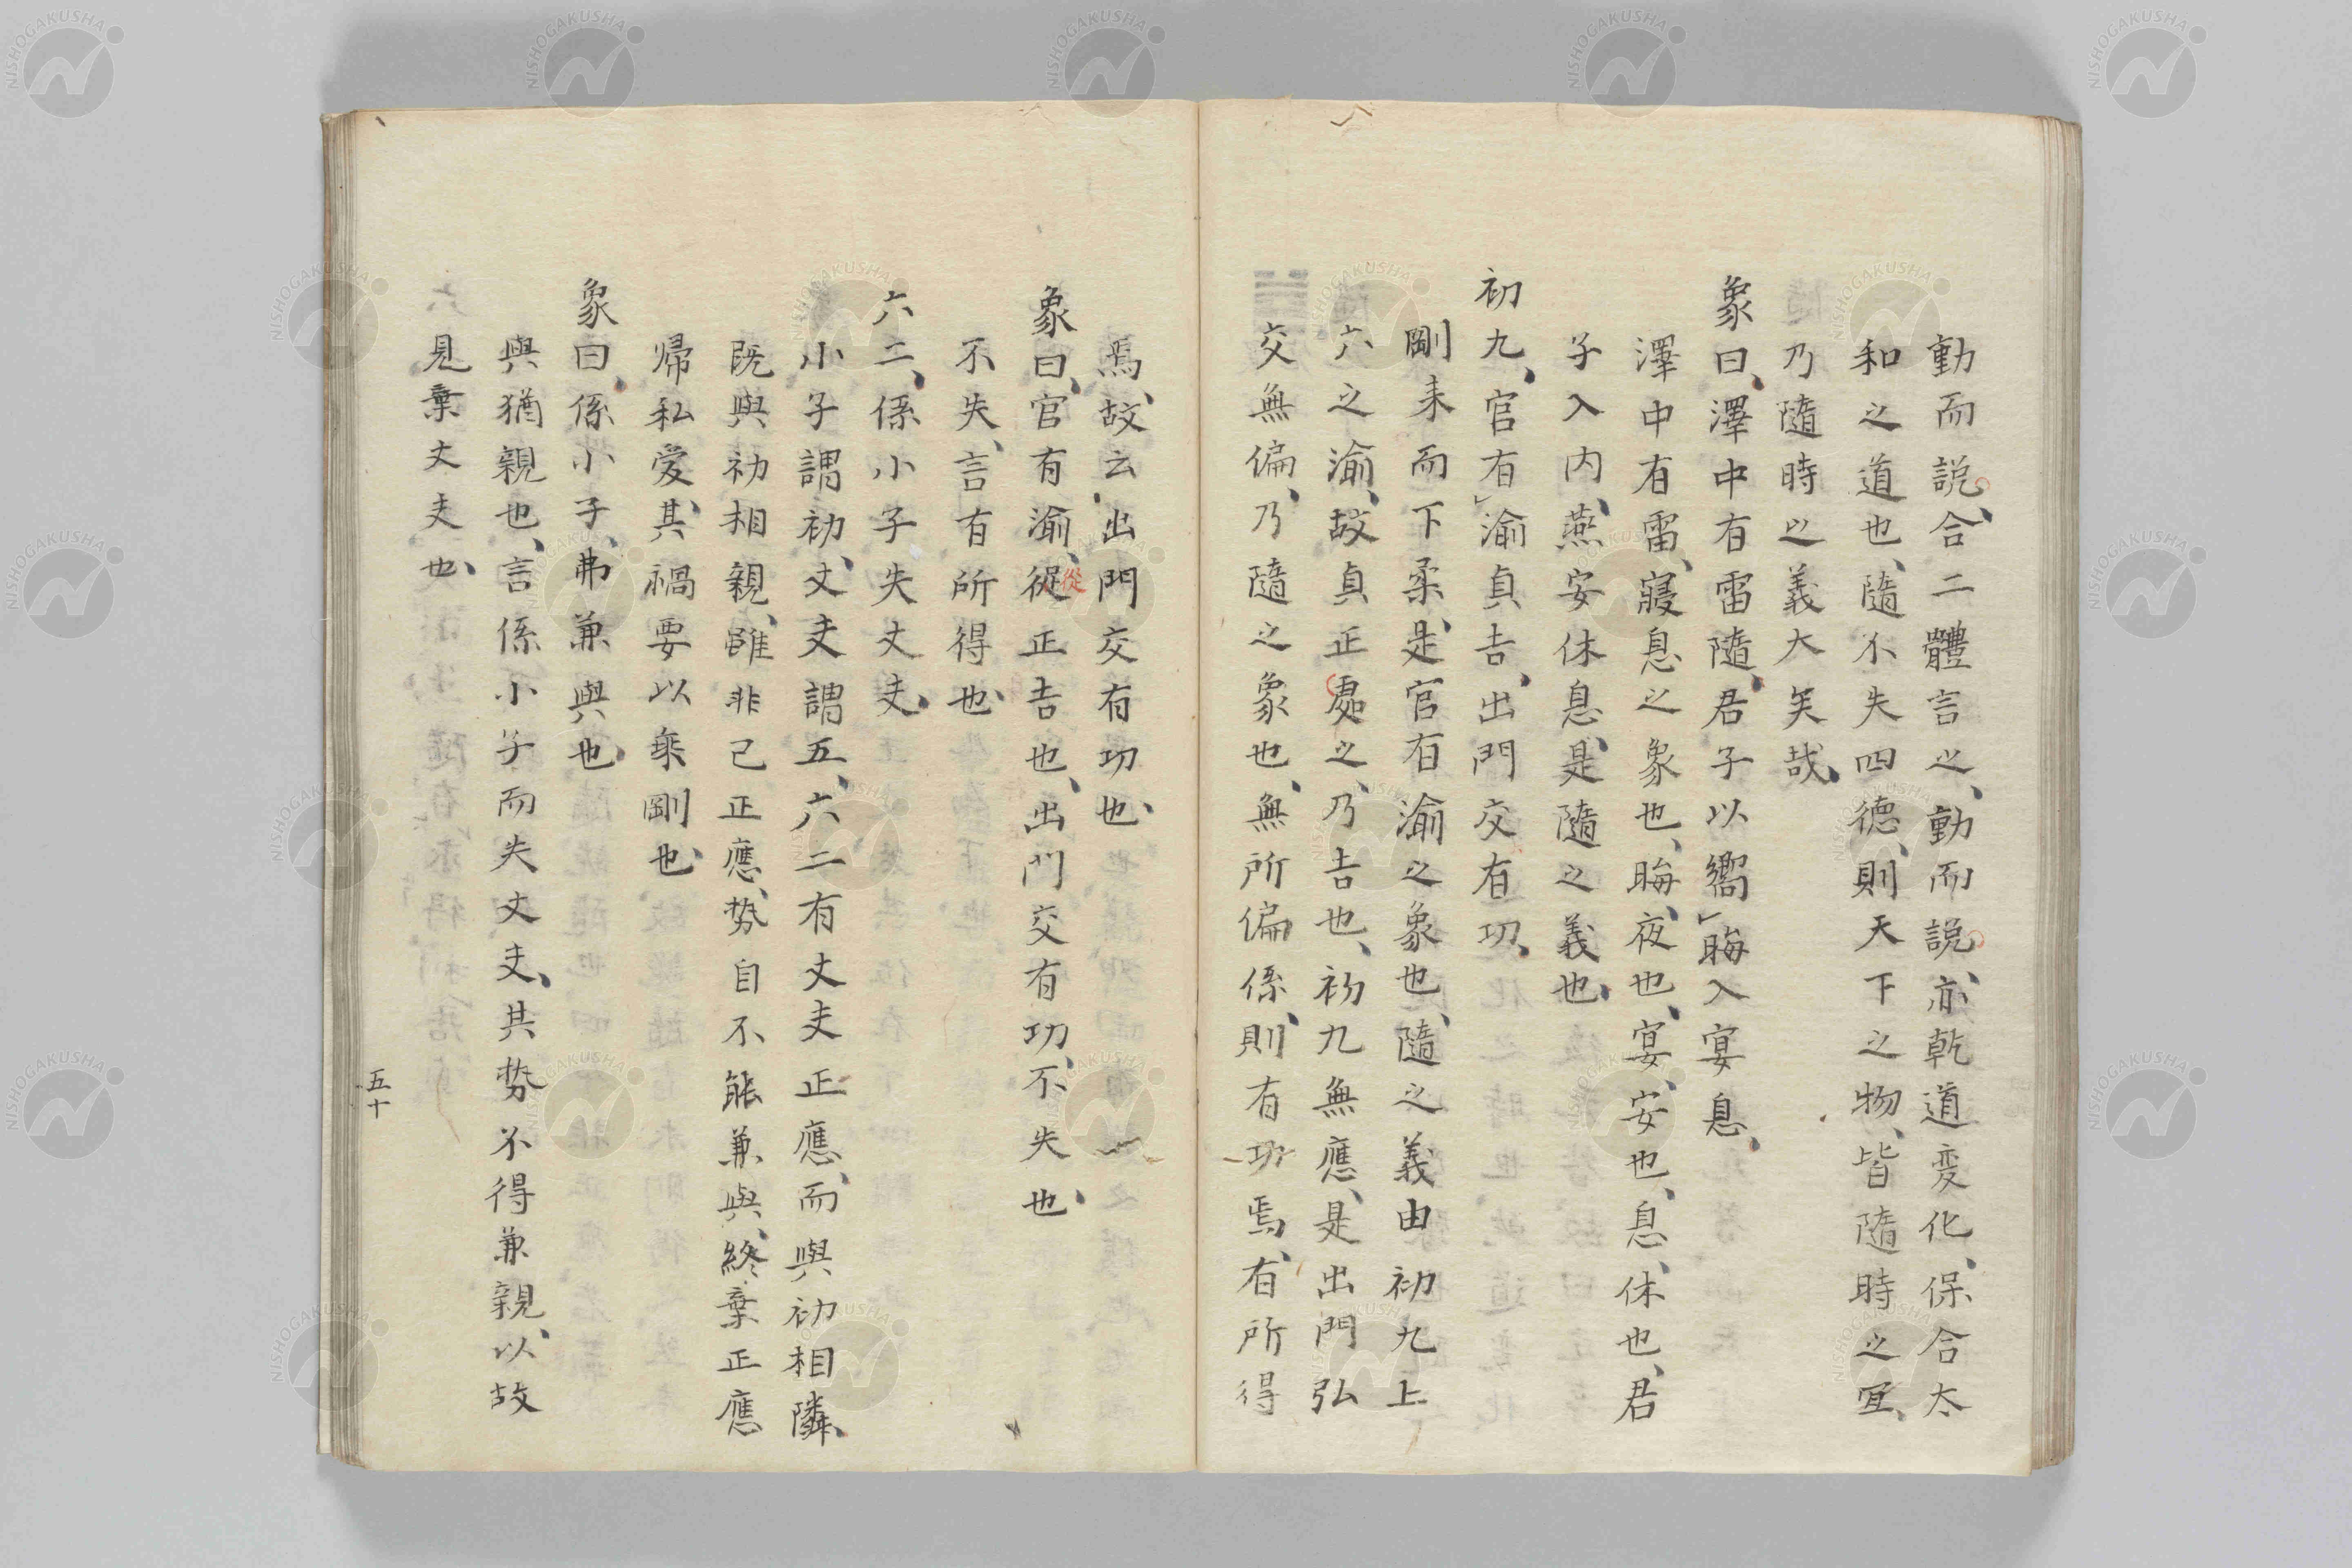 動而説、合二體言之、動而説、亦乾道変化、保合太
和之道也、隨不失四德、則天下之物、皆隨時之宜、
乃隨時之義大矣哉、
象曰、澤中有雷隨、君子以嚮晦入宴息、
澤中有雷、寢息之象也、晦、夜也、宴、安也、息、休也、君
子入内、燕安休息、是隨之義也、
初九、官有渝貞吉、出門交有功、
剛来而下柔、是官有渝之象也、隨之義由初九上
六之渝、故貞正處之、乃吉也、初九無應、是出門弘
交無偏、乃隨之象也、無所偏係、則有功焉、有所得
焉、故云、出門交有功也、
象曰、官有渝、從正吉也、出門交有功、不失也、
從
不失、言有所得也、
六二、係小子失丈夫、
小子謂初、丈夫謂五、六二有丈夫正應、而與初相隣、
既與初相親、雖非己正應、勢自不能兼與、終棄正應
帰私愛、其禍要以乗剛也、
象曰、係小子、弗兼與也、
與猶親也、言係小子而失丈夫、其勢不得兼親、以故
見棄丈夫也、
五十
NISHOGAKUSHA